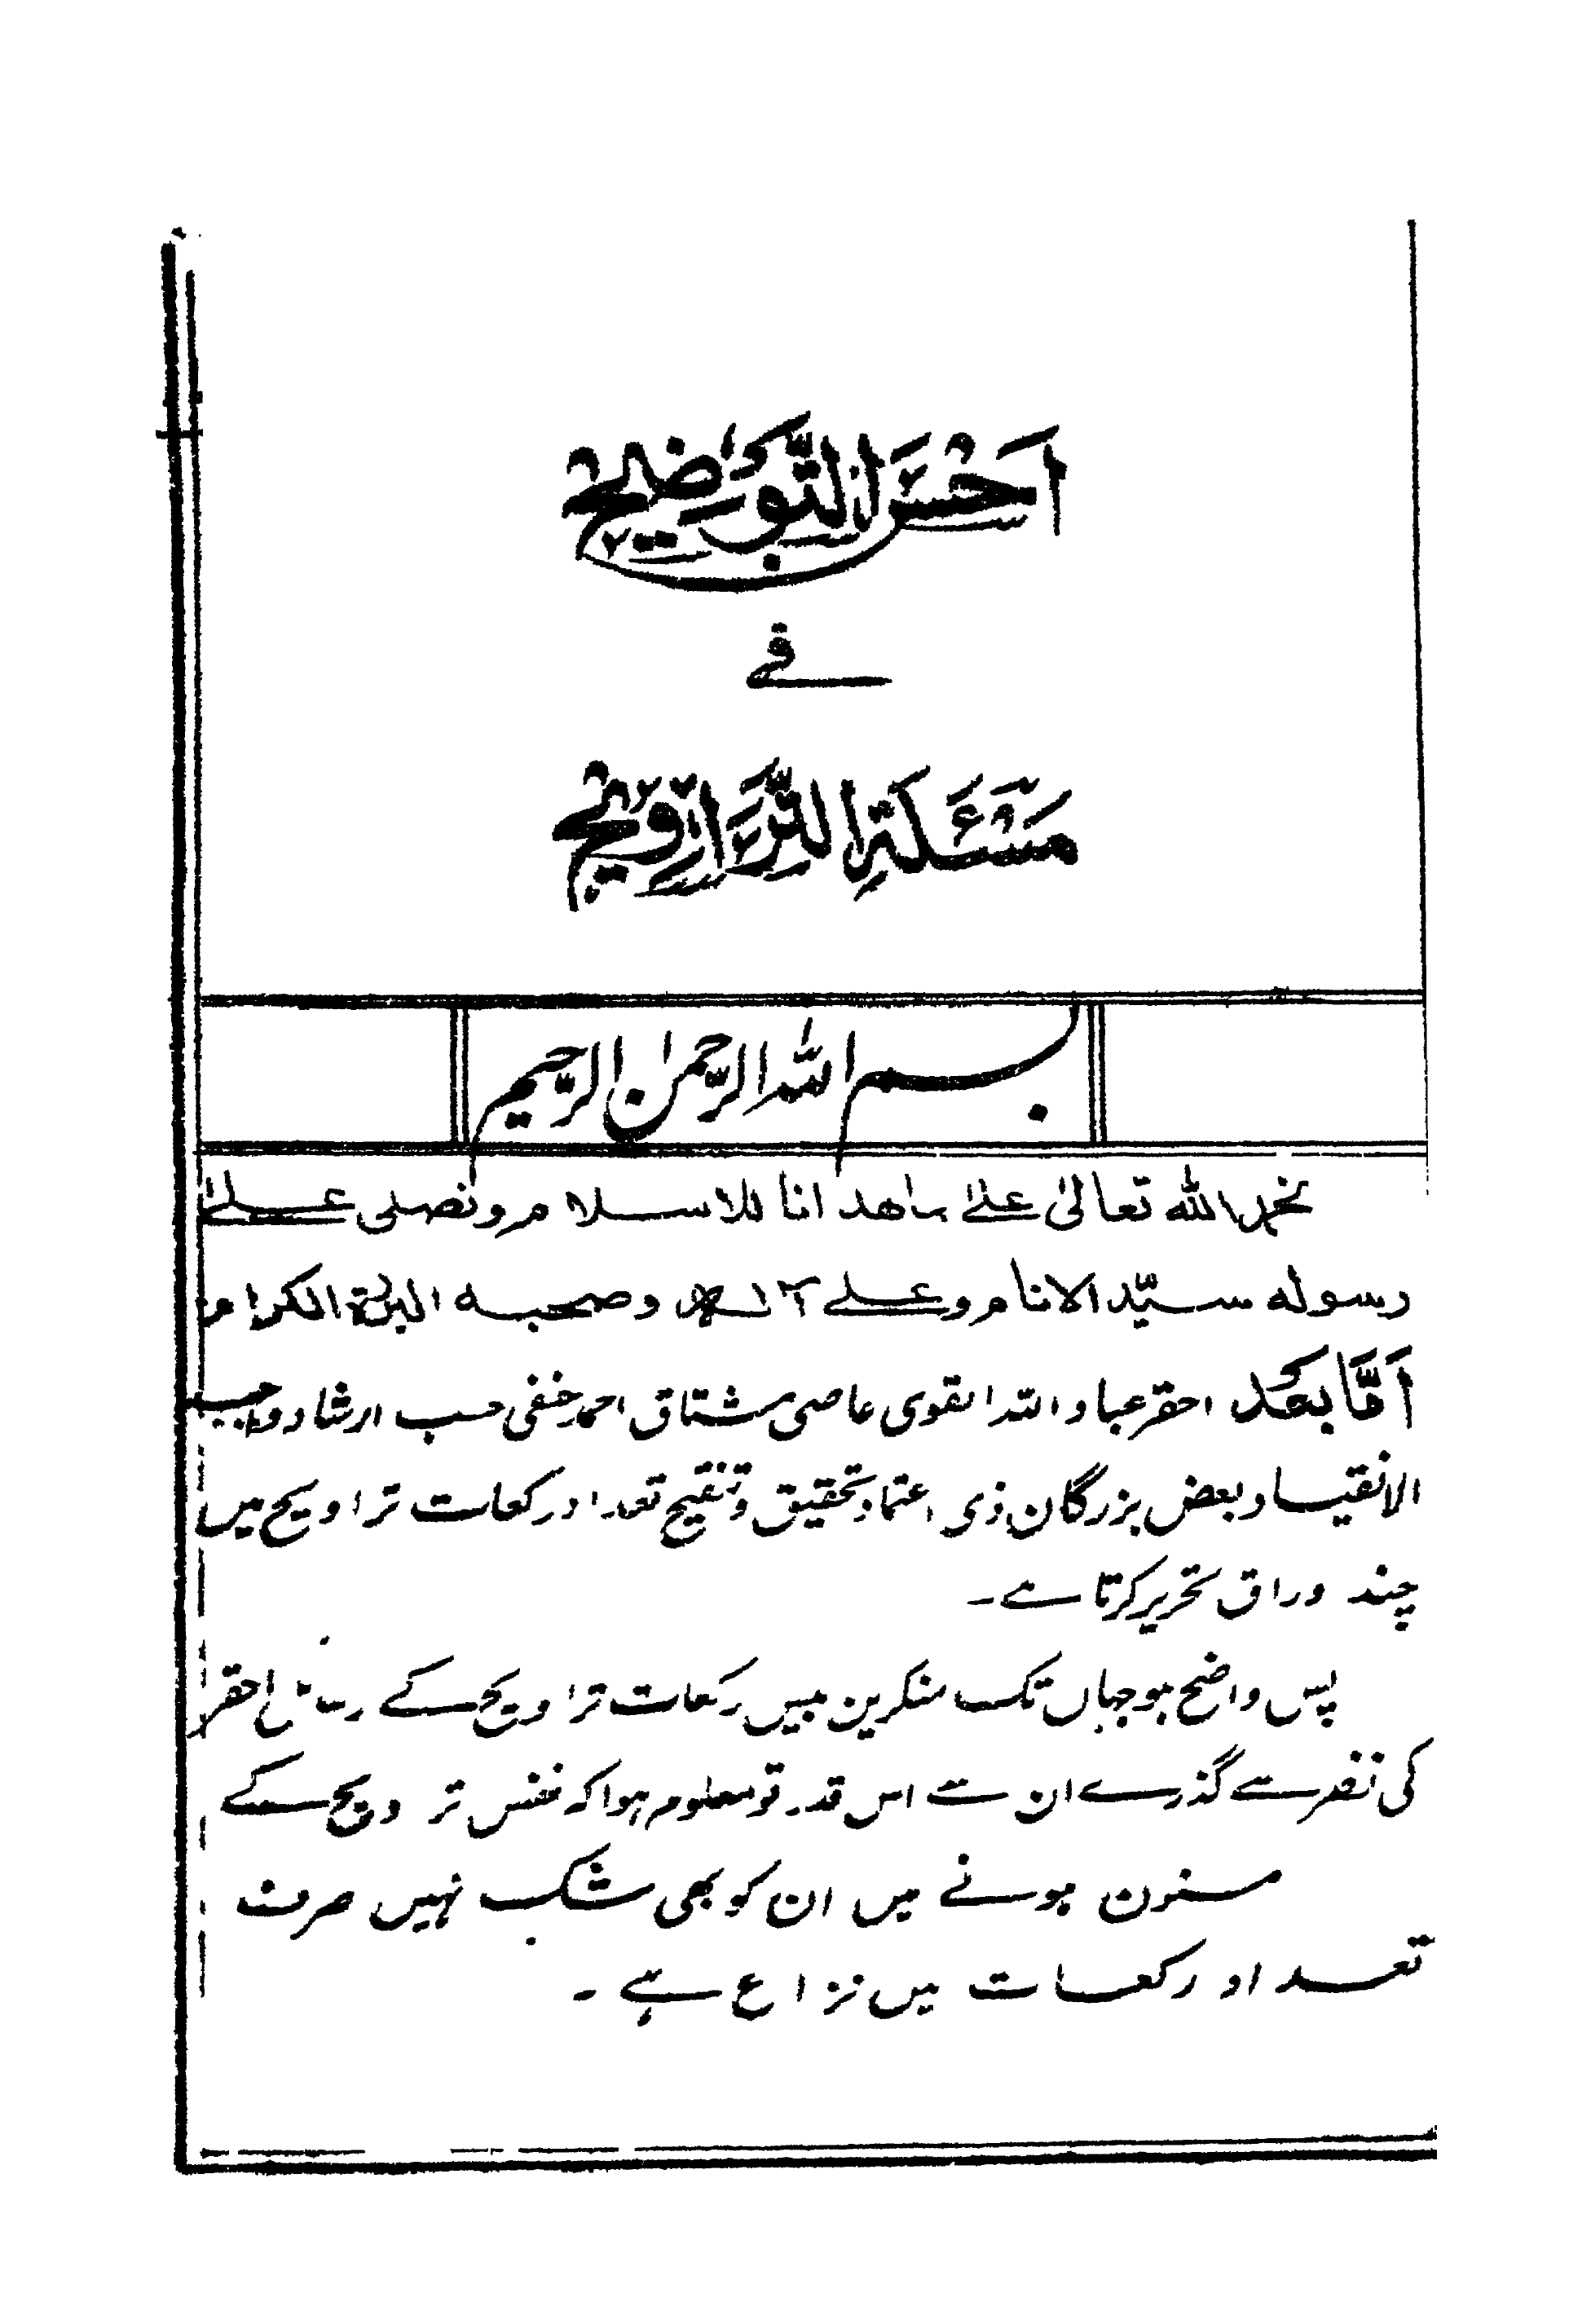 اَحْسَنُ التَّوْضِيْح
فے
مَسْئَلَةِ التَّرَاوِيْح
بسم اللہ الرّحمٰن الرّحیم
نحمد اللہ تعالیٰ علیٰ ماھدانا للاسلام ونصلی علیٰ
رسولہ سیّد الانام وعلےٰ اٰلہ وصحبہ البررۃ الکرام
اَمَّا بَعْد احقر عباد اللہ القوی عاصی مشتاق احمد حنفی حسب ارشاد واجب
الانقیاد بعض بزرگان ذی اعتماد تحقیق و تنقیح تعداد رکعات تراویح میں
چند وراق تحریر کرتا ہے۔
پس واضح ہو جہاں تک منکرین بیس رکعات تراویح کے رسائل احقر
کی نظر سے گذرے ان سے اس قدر تو معلوم ہوا کہ نفس تر ویح کے
مسنون ہونے میں ان کو بھی شک نہیں صرف
تعداد رکعات میں نزاع ہے۔